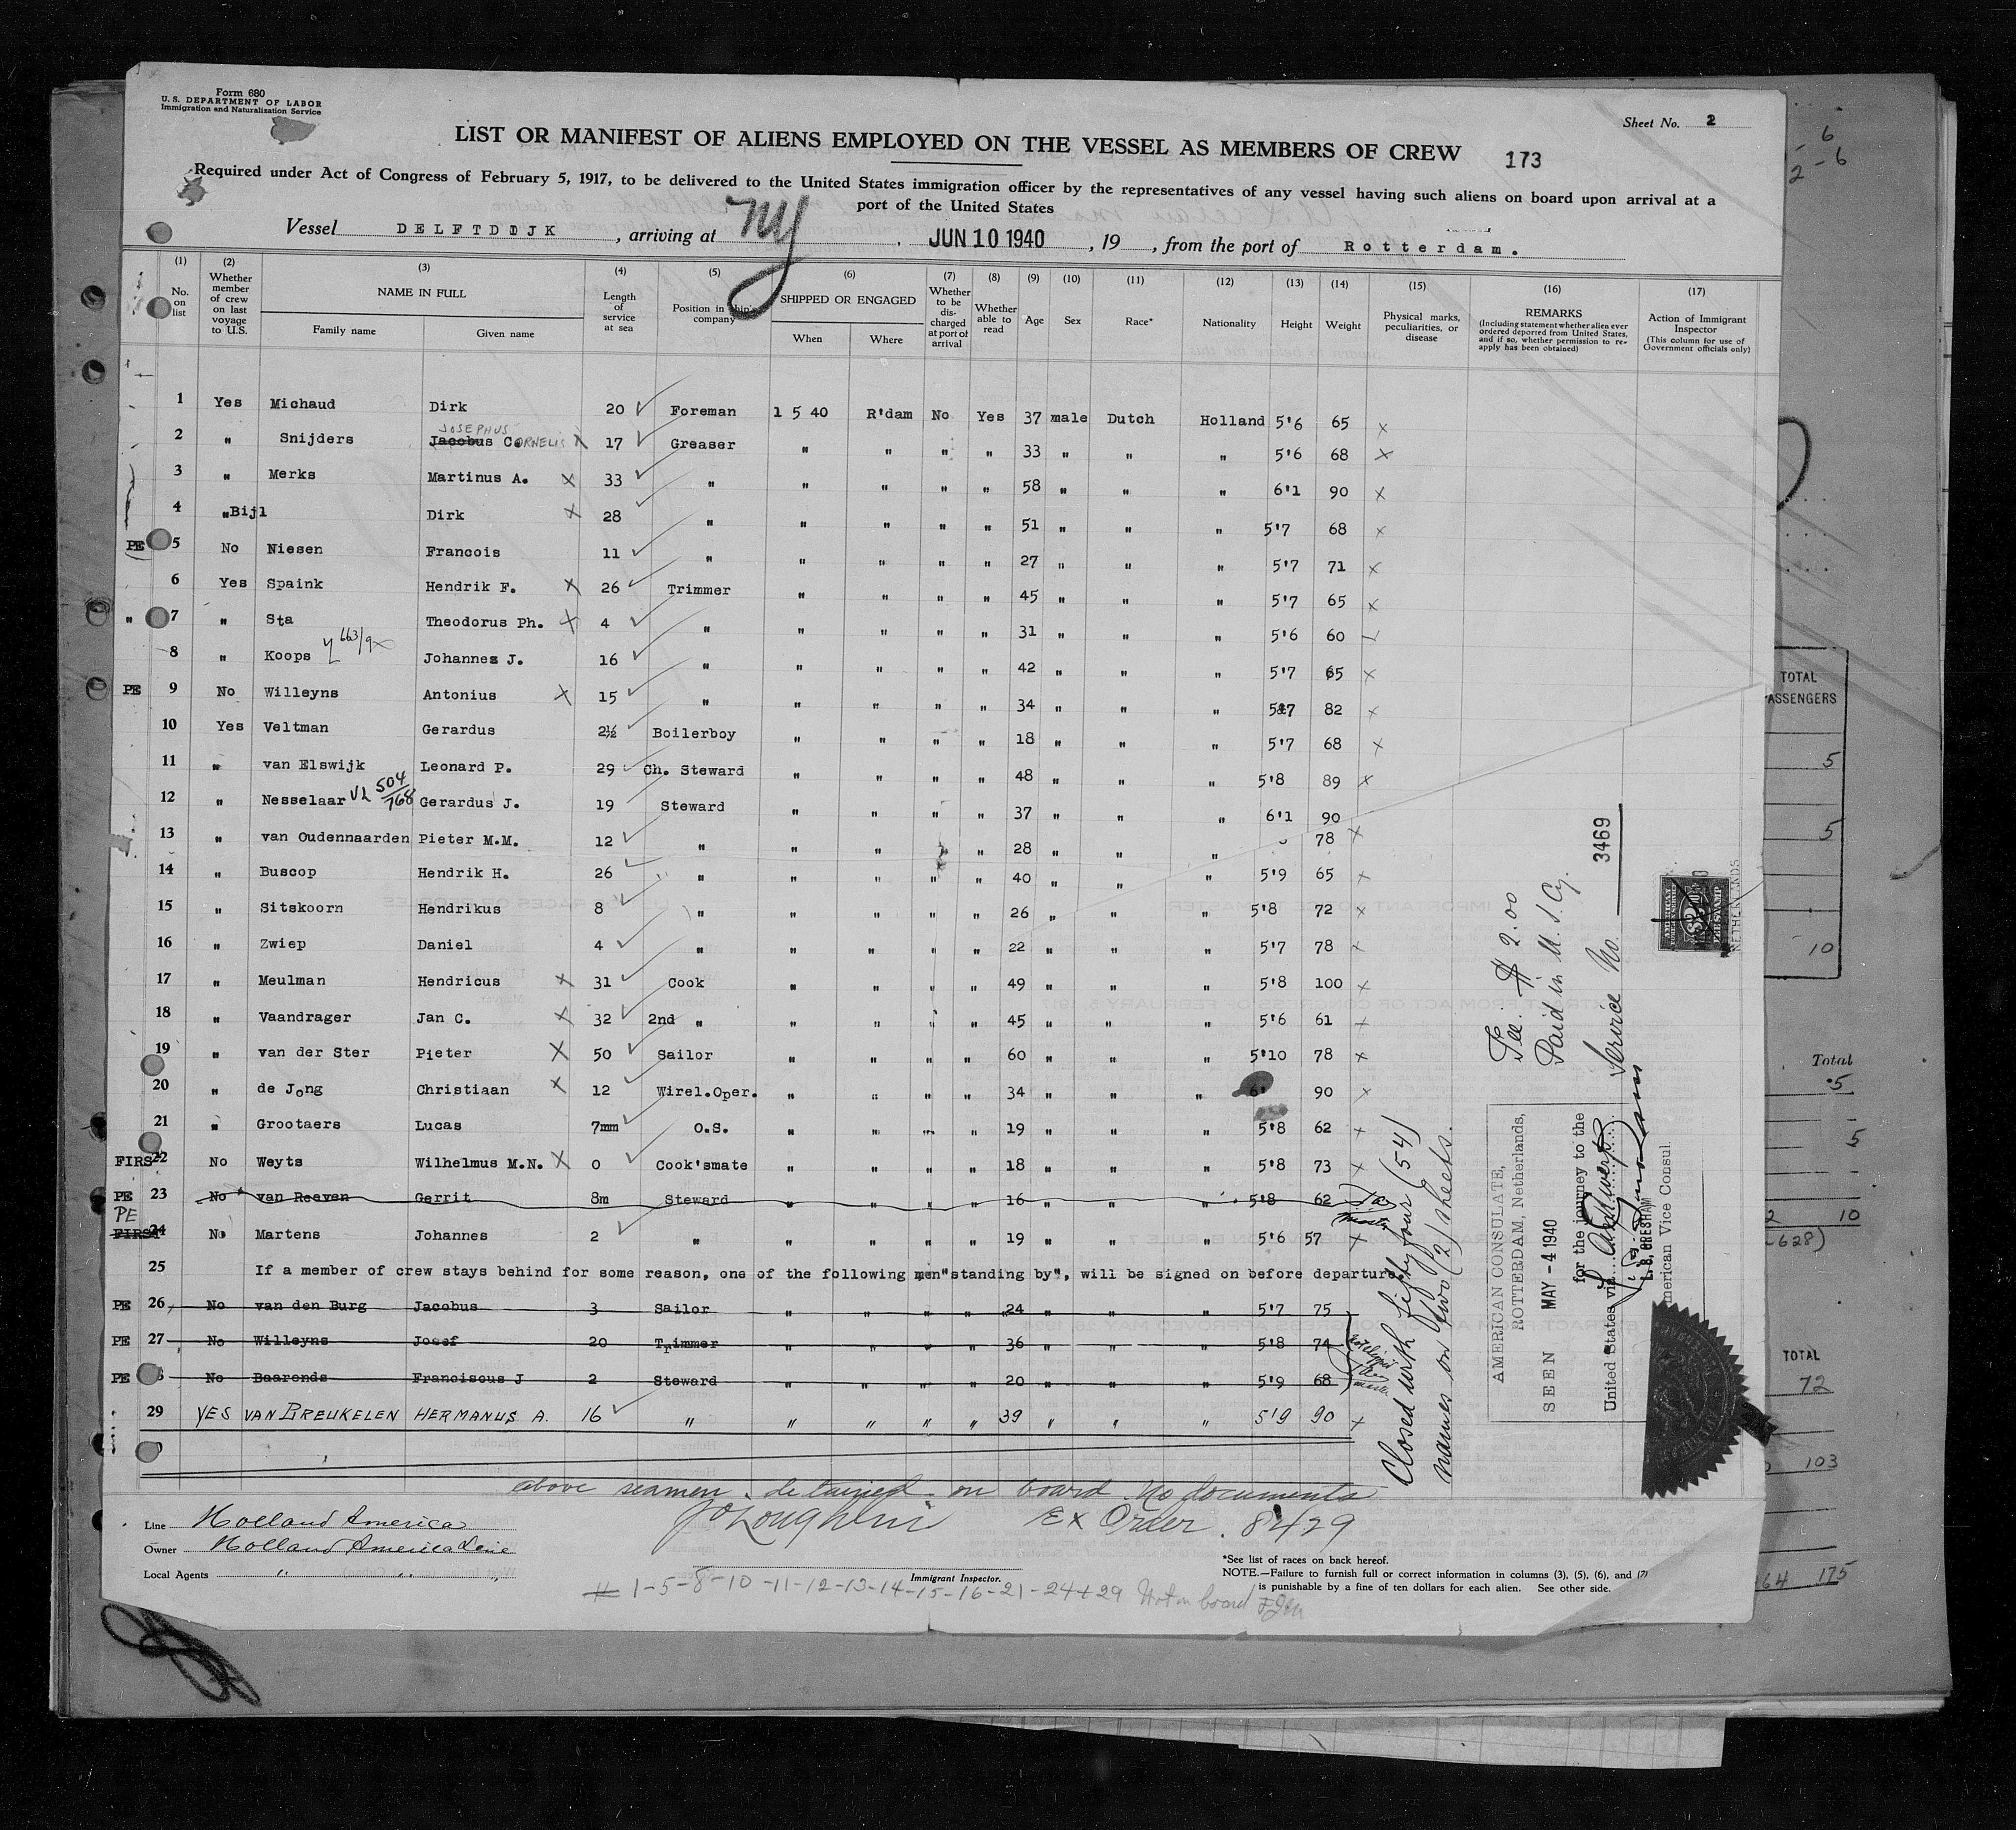 Form 680
U. S. DEPARTMENT OF LABOR
Immigration and Naturalization Service
Sheet No. 2
LIST OR MANIFEST OF ALIENS EMPLOYED ON THE VESSEL AS MEMBERS OF CREW 173
Required under Act of Congress of February 5, 1917, to be delivered to the United States immigration officer by the representatives of any vessel having such aliens on board upon arrival at a
port of the United States
Vessel DELFTDIJK, arriving at NY, JUN 10 1940, 19 , from the port of Rotterdam.
(1) No. on list
(2) Whether member of crew on last voyage to U.S.
(3) NAME IN FULL Family name Given name
(4) Length of service at sea
(5) Position in ship's company
(6) SHIPPED OR ENGAGED When Where
(7) Whether to be discharged at port of arrival
(8) Whether able to read
(9) Age
(10) Sex
(11) Race*
(12) Nationality
(13) Height
(14) Weight
(15) Physical marks, peculiarities, or disease
(16) REMARKS (Including statement whether alien ever ordered deported from United States, and if so, whether permission to reapply has been obtained)
(17) Action of Immigrant Inspector (This column for use of Government officials only)
1 Yes Michaud Dirk 20 Foreman 1 5 40 R'dam No Yes 37 male Dutch Holland 5'6 65 x
2 " Snijders JOSEPHUS Jacobus CORNELIS x 17 Greaser " " " " 33 " " " 5'6 68 x
3 " Merks Martinus A. x 33 " " " " " 58 " " " 6'1 90 x
4 " Bijl Dirk x 28 " " " " " 51 " " " 5'7 68 x
PE 5 No Niesen Francois 11 " " " " " 27 " " " 5'7 71 x
6 Yes Spaink Hendrik F. x 26 Trimmer " " " " 45 " " " 5'7 65 x
" 7 " Sta Theodorus Ph. x 4 " " " " " 31 " " " 5'6 60
8 " Koops Johannes J. 16 " " " " " 42 " " " 5'7 65 x
PE 9 No Willeyns Antonius x 15 " " " " " 34 " " " 5'7 82 x
10 Yes Veltman Gerardus 2½ Boilerboy " " " " 18 " " " 5'7 68 x
11 " van Elswijk Leonard P. 29 Ch. Steward " " " " 48 " " " 5'8 89 x
12 " Nesselaar VL 504/768 Gerardus J. 19 Steward " " " " 37 " " " 6'1 90
13 " van Oudennaarden Pieter M.M. 12 " " " " " 28 " " " 78 x
14 " Buscop Hendrik H. 26 " " " " " 40 " " " 5'9 65 x
15 " Sitskoorn Hendrikus 8 " " " " " 26 " " " 5'8 72 x
16 " Zwiep Daniel 4 " " " " " 22 " " " 5'7 78 x
17 " Meulman Hendricus x 31 Cook " " " " 49 " " " 5'8 100 x
18 " Vaandrager Jan C. x 32 2nd " " " " " 45 " " " 5'6 61 x
19 " van der Ster Pieter x 50 Sailor " " " " 60 " " " 5'10 78 x
20 " de Jong Christiaan x 12 Wirel.Oper. " " " " 34 " " " 6' 90 x
21 " Grootaers Lucas 7mm O.S. " " " " 19 " " " 5'8 62 x
FIRST 22 No Weyts Wilhelmus M.N. x 0 Cook'smate " " " " 18 " " " 5'8 73 x
PE 23 No van Reeven Gerrit 8m Steward " " " " 16 " " " 5'8 62
PE FIRST 24 No Martens Johannes 2 " " " " " 19 " " " 5'6 57 x
25 If a member of crew stays behind for some reason, one of the following men"standing by", will be signed on before departure.
PE 26 No van den Burg Jacobus 3 Sailor " " " " 24 " " " 5'7 75
PE 27 No Willeyns Josef 20 Trimmer " " " " 36 " " " 5'8 74
PE No Baarends Franciscus J 2 Steward " " " " 20 " " " 5'9 68
29 YES VAN BREUKELEN HERMANUS A. 16 " " " " " 39 " " " 5'9 90 x
above seamen detained on board. No documents
Ex Order. 8429
Line Holland America
Owner Holland America Line
Local Agents " " "
Immigrant Inspector.
# 1-5-8-10-11-12-13-14-15-16-21-24+29 Not on board
*See list of races on back hereof.
NOTE.—Failure to furnish full or correct information in columns (3), (5), (6), and (7)
is punishable by a fine of ten dollars for each alien. See other side.
Closed with fifty four (54)
names on two (2) sheets.
AMERICAN CONSULATE,
ROTTERDAM, Netherlands,
SEEN MAY - 4 1940
for the journey to the
United States via Antwerp
L. B. GRESHAM
American Vice Consul
Fee: $ 2.00
Paid in U. S. Cy.
Service No. 3469
AMERICAN
FEE STAMP
NETHERLANDS
6
2 - 6
TOTAL
PASSENGERS
5
5
10
Total
5
5
10
628)
TOTAL
72
103
64 175